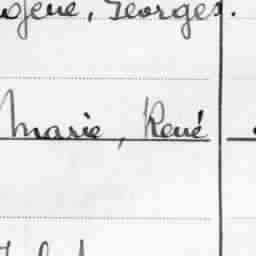 Georges.
Marie, René